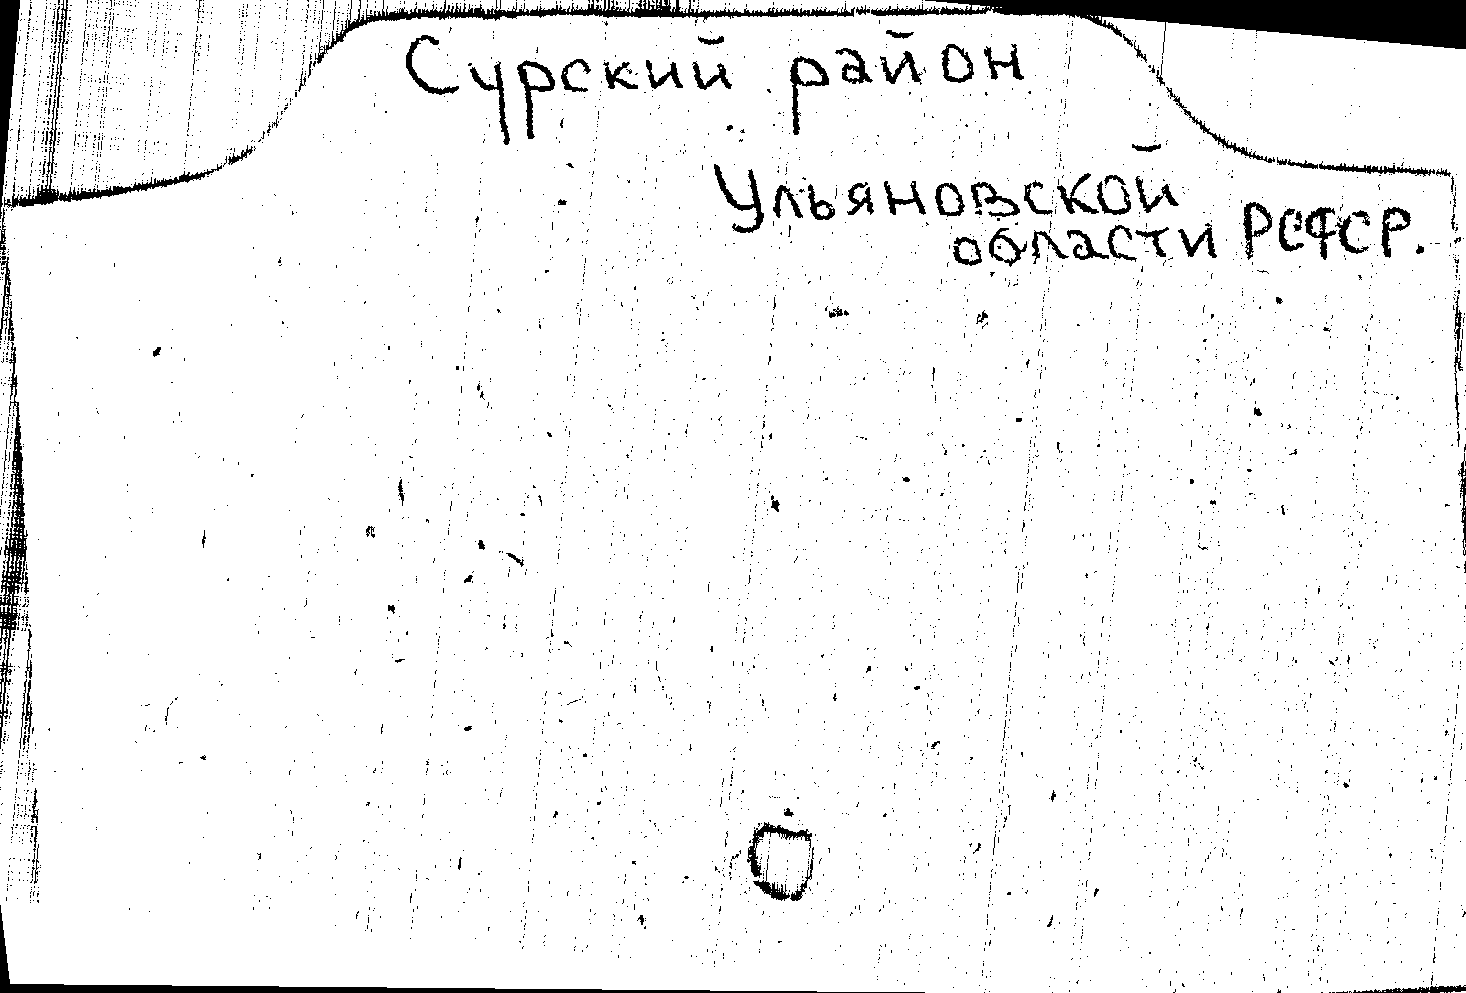 Сурский район
Ульяновской
области РСФСР.